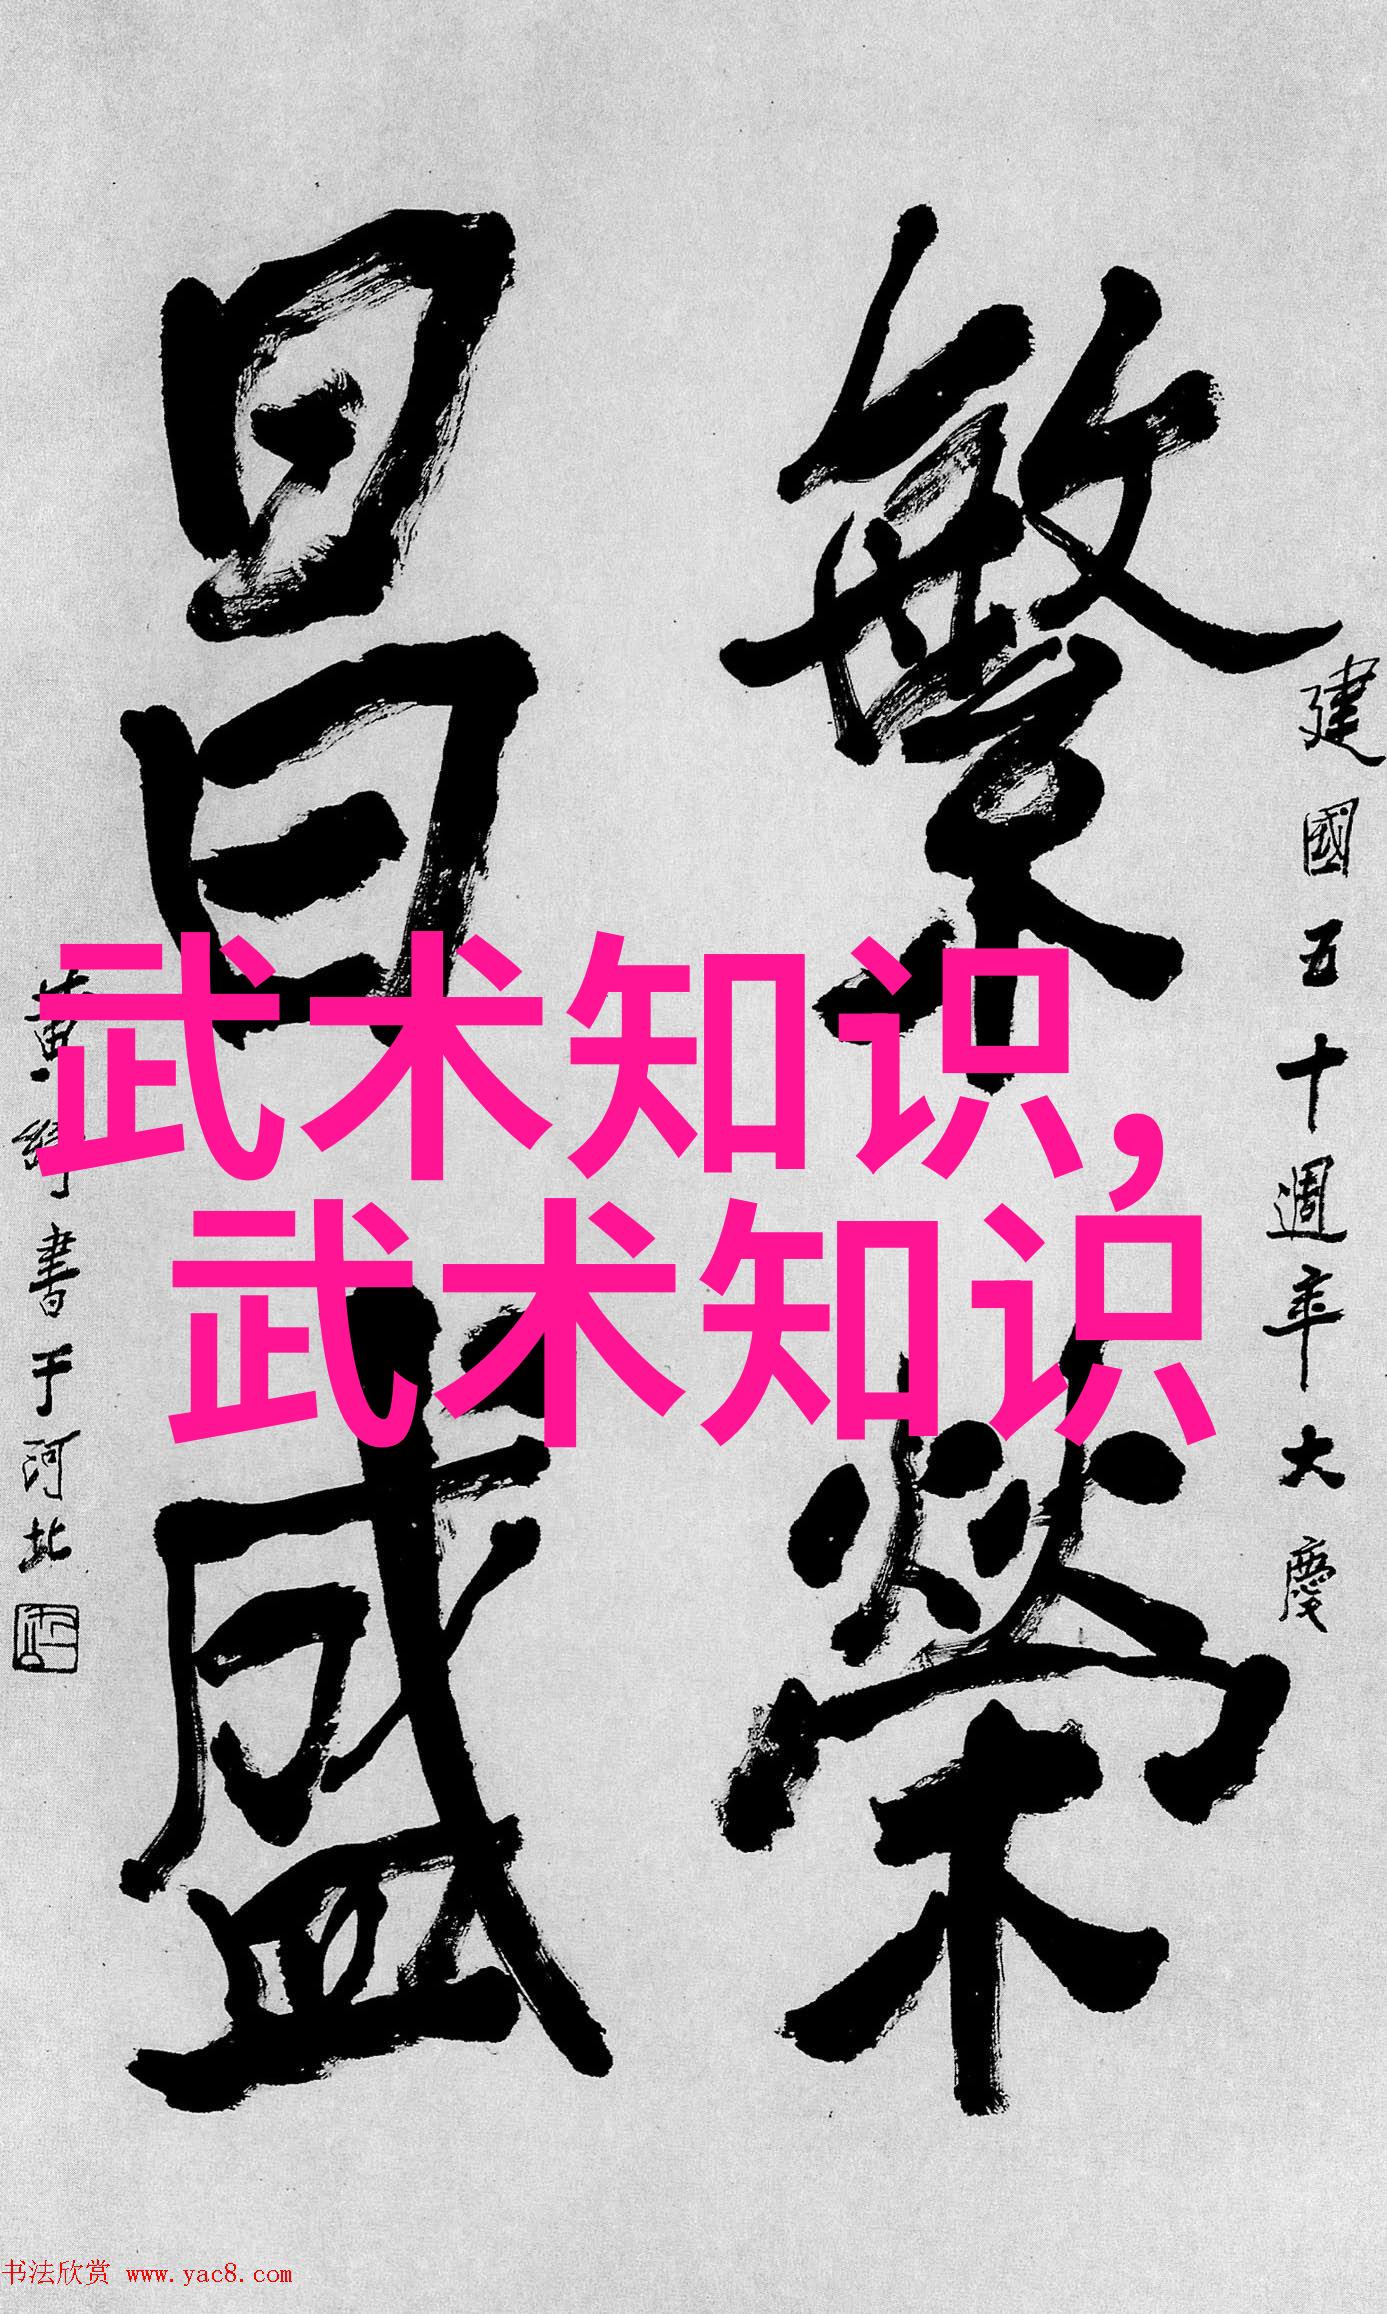 建國五十週年大慶
繁榮
昌盛
黄綺書于河北
武术知识,
武术知识
书法欣赏 www.yac8.com